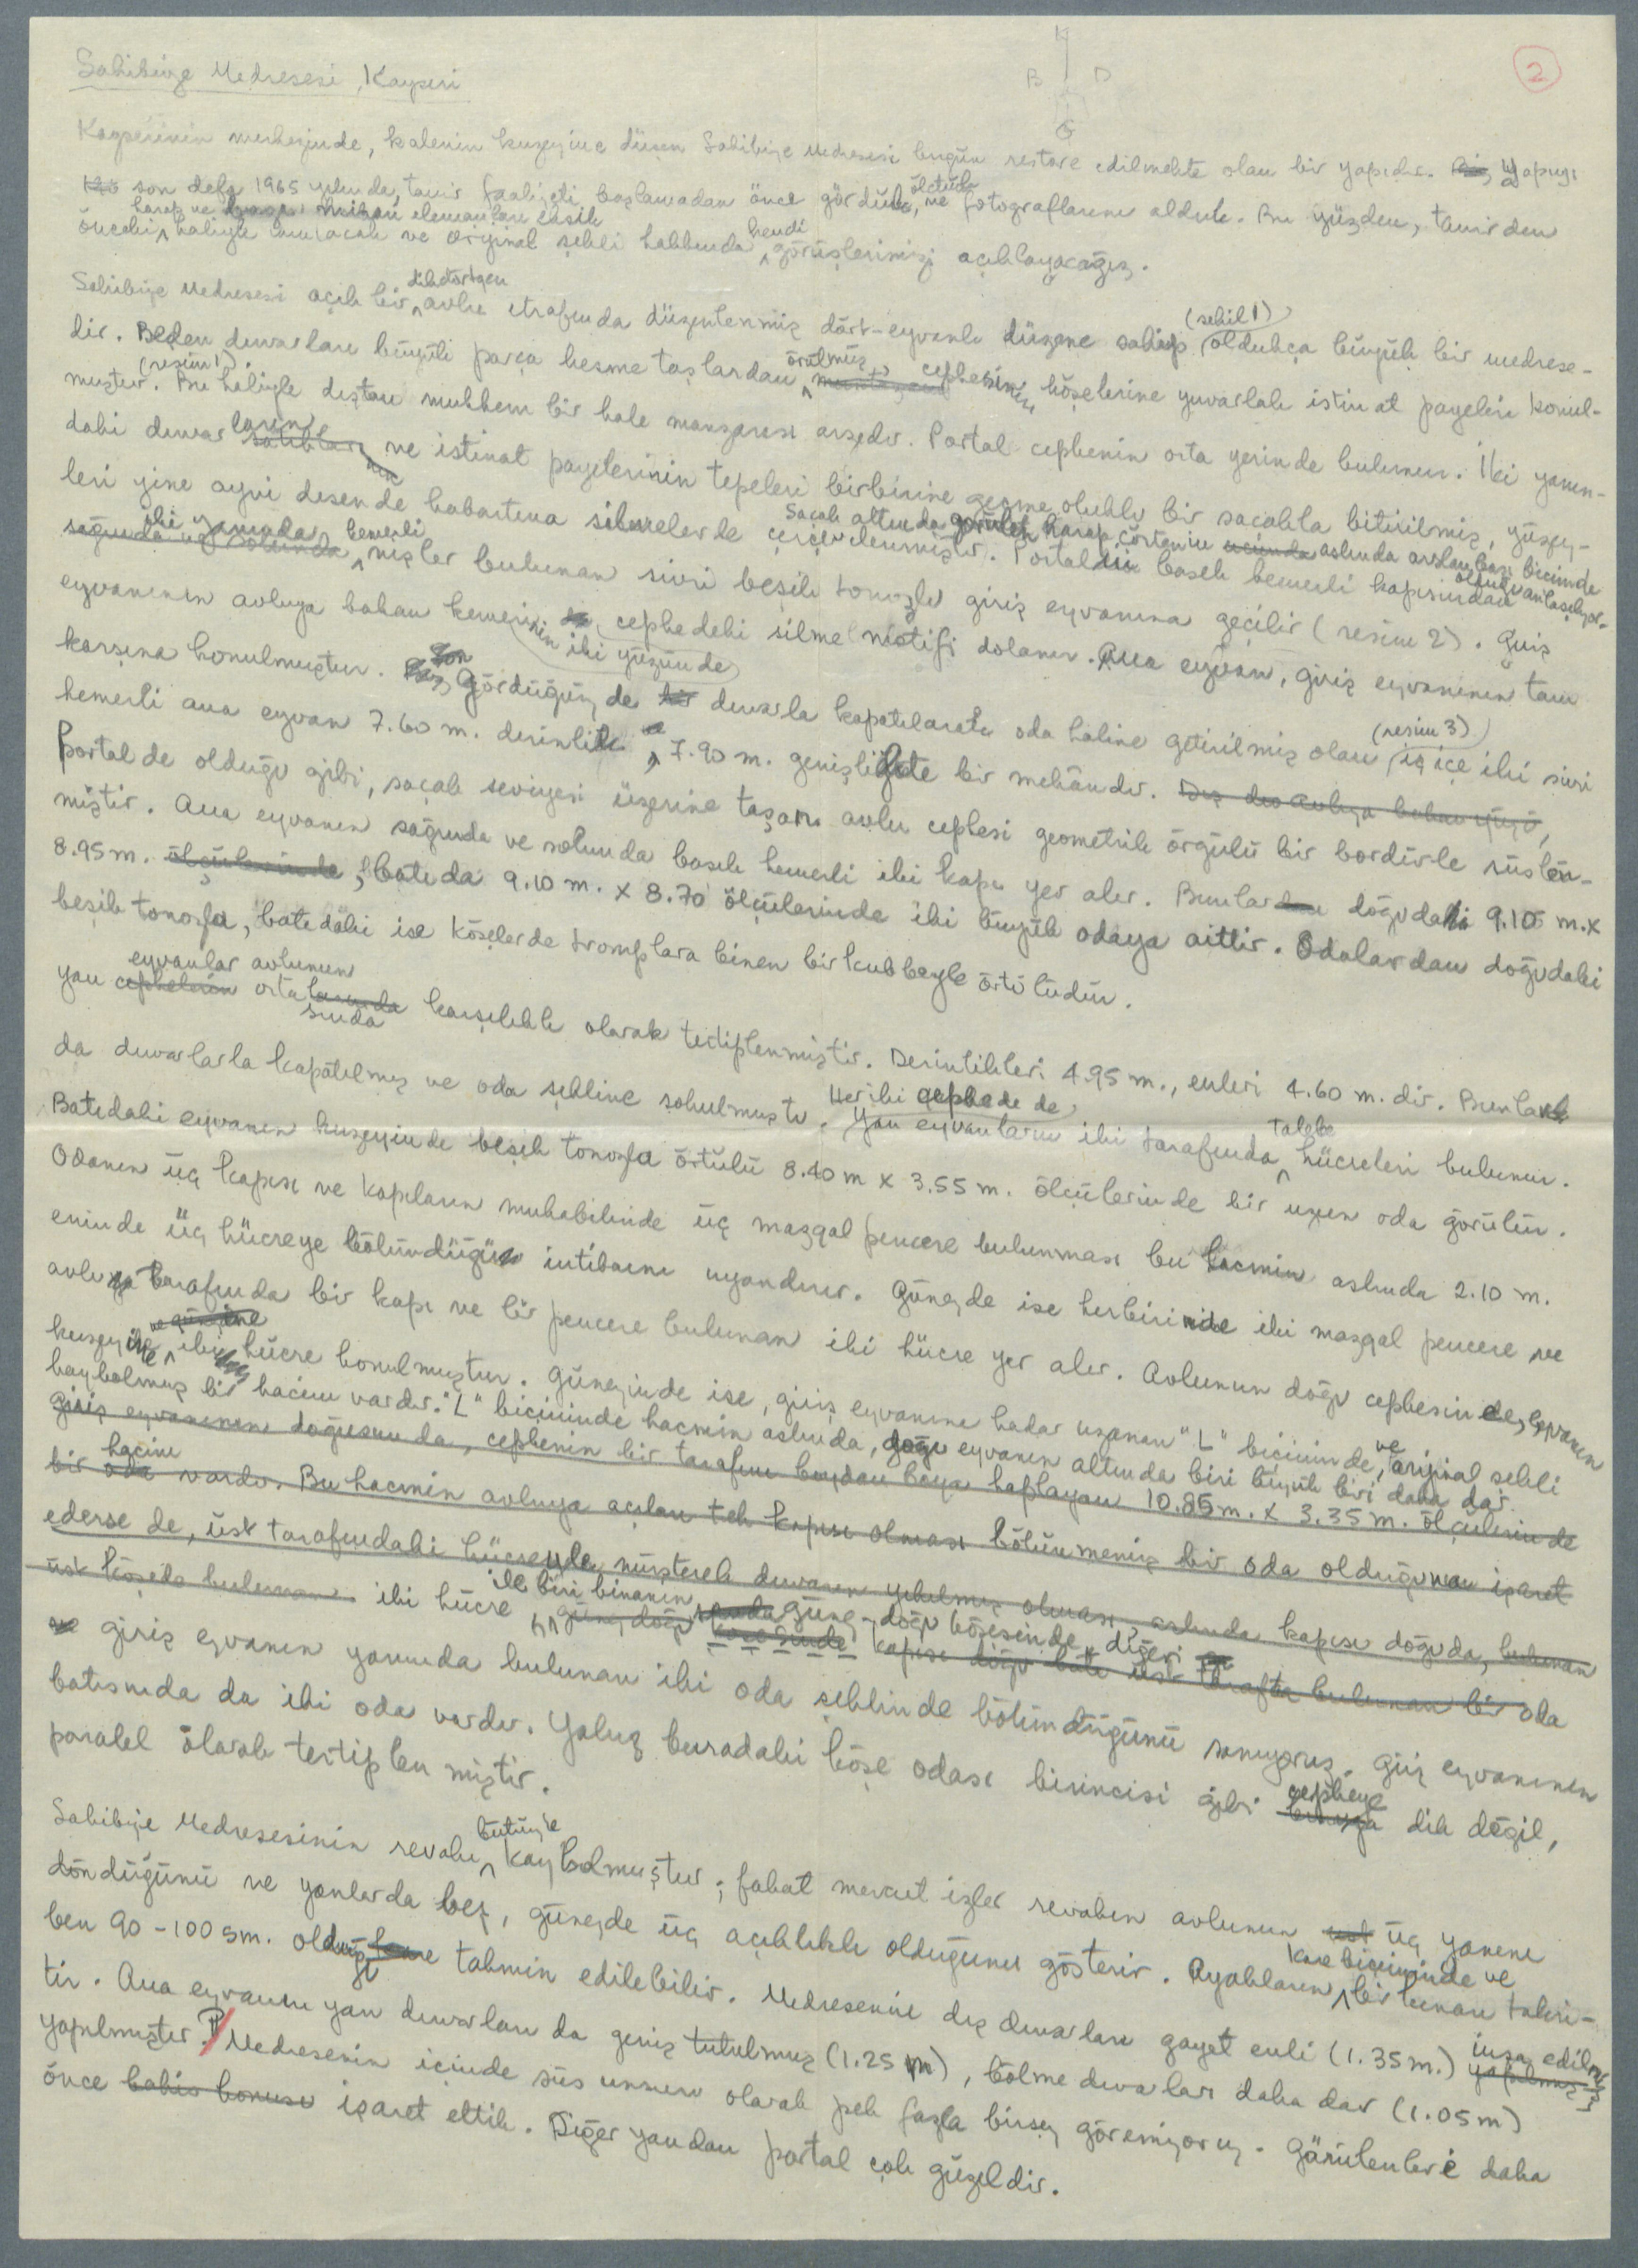 2
K
B D
G
Sahibiye Medresesi, Kayseri
Kayserinin merkezinde, kalenin kuzeyine düşen Sahibiye Medresesi bugün restore edilmekte olan bir yapıdır. Biz, yapıyı
son defa 1965 yılında, tamir faaliyeti başlamadan önce gördük, ölçtük ve fotograflarını aldık. Bu yüzden, tamirden
önceki harap ve mimari elemanları eksik haliyle ve orijinal şekli hakkında kendi görüşlerimizi açıklayacağız.
Sahibiye Medresesi açık bir dikdörtgen avlu etrafında düzenlenmiş dört-eyvanlı düzene sahip (şekil 1) oldukça büyük bir medrese-
dir. Beden duvarları büyük parça kesme taşlardan örülmüş, cephenin köşelerine yuvarlak istinat payeleri konul-
muştur. (resim 1). Bu haliyle dıştan muhkem bir kale manzarası arzeder. Portal cephenin orta yerinde bulunur. İki yanın-
daki duvarların ve istinat payelerinin tepeleri birbirine geçme oluklu bir saçakla bitirilmiş, yüzey-
leri yine ayni desende kabartma silmelerle çerçevelenmiştir. Saçak altında görülen harap çörtenin ucunda aslında arslan başı biçiminde olduğu anlaşılıyor.
Portalin basık kemerli kapısından
sağında ve solunda iki yanında kemerli nişler bulunan sivri beşik tonozlu giriş eyvanına geçilir (resim 2). Giriş
eyvanının avluya bakan kemerinin iki yüzünde cephedeki silme motifi dolanır. Ana eyvan, giriş eyvanının tam
karşına konulmuştur. Son gördüğünde bir duvarla kapatılarak oda haline getirilmiş olan (resim 3) iç içe iki sivri
kemerli ana eyvan 7.60 m. derinlik ve 7.90 m. genişlikte bir mekândır. Dış avluya bakan yüzü,
Portalde olduğu gibi, saçak seviyesi üzerine taşan avlu cephesi geometrik örgülü bir bordürle süslen-
miştir. Ana eyvanın sağında ve solunda basık kemerli iki kapı yer alır. Bunlardan doğudaki 9.10 m. x
8.95 m. ölçülerinde, batıda 9.10 m. x 8.70 ölçülerinde iki büyük odaya aittir. Odalardan doğudaki
beşik tonozla, batıdaki ise köşelerde tromplara binen bir kubbeyle örtülüdür.
Yan eyvanlar avlunun cephelerin ortasında karşılıklı olarak tertiplenmiştir. Derinlikleri 4.95 m., enleri 4.60 m. dir. Bunlar
da duvarlarla kapatılmış ve oda şekline sokulmuştu. Her iki cephede de yan eyvanların iki tarafında talebe hücreleri bulunur.
Batıdaki eyvanın kuzeyinde beşik tonozla örtülü 8.40 m x 3.55 m. ölçülerinde bir uzun oda görülür.
Odanın üç kapısı ve kapıların mukabilinde üç mazgal pencere bulunması bu hacmin aslında 2.10 m.
eninde üç hücreye bölündüğü intibaını uyandırır. Güneyde ise herbirinde iki mazgal pencere ve
avluya tarafında bir kapı ve bir pencere bulunan iki hücre yer alır. Avlunun doğu cephesinde, eyvanın
kuzeyine ve güneyine iki hücre konulmuştur. Güneyinde ise, giriş eyvanına kadar uzanan "L" biçiminde, ve orijinal şekli
kaybolmuş bir hacim vardır. "L" biçiminde hacmin aslında, doğu eyvanın altında biri büyük biri daha dar
giriş eyvanının doğusunda, cephenin bir tarafını boydan boya kaplayan 10.85 m. x 3.35 m. ölçülerinde
bir oda hacim vardır. Bu hacmin avluya açılan tek kapısı olması bölünmemiş bir oda olduğuna işaret
ederse de, üst tarafındaki hücreyle müşterek duvarın yıkılmış olması, aslında kapısı doğuda, bulunan
üst köşede bulunan iki hücre ile biri binanın güney-doğu köşesinde, diğeri üst tarafta bulunan bir oda
giriş eyvanın yanında bulunan iki oda şeklinde bölündüğünü sanıyoruz. Giriş eyvanının
batısında da iki oda vardır. Yalnız buradaki köşe odası birincisi gibi cepheye dik değil,
paralel olarak tertiplenmiştir.
Sahibiye Medresesinin revakı bütünüyle kaybolmuştur; fakat mevcut izler revakın avlunun üç yanını
döndüğünü ve yanlarda beş, güneyde üç açıklıklı olduğunu gösterir. Ayakların kare biçiminde ve bir kenarı takri-
ben 90-100 sm. olduğu tahmin edilebilir. Medresenin dış duvarları gayet enli (1.35 m.) inşa edilmiş-
tir. Ana eyvanın yan duvarları da geniş tutulmuş (1.25 m), bölme duvarları daha dar (1.05 m)
yapılmıştır. P/ Medresenin içinde süs unsuru olarak pek fazla birşey göremiyoruz. Görülenlere daha
önce bahis konusu işaret ettik. Diğer yandan portal çok güzeldir.